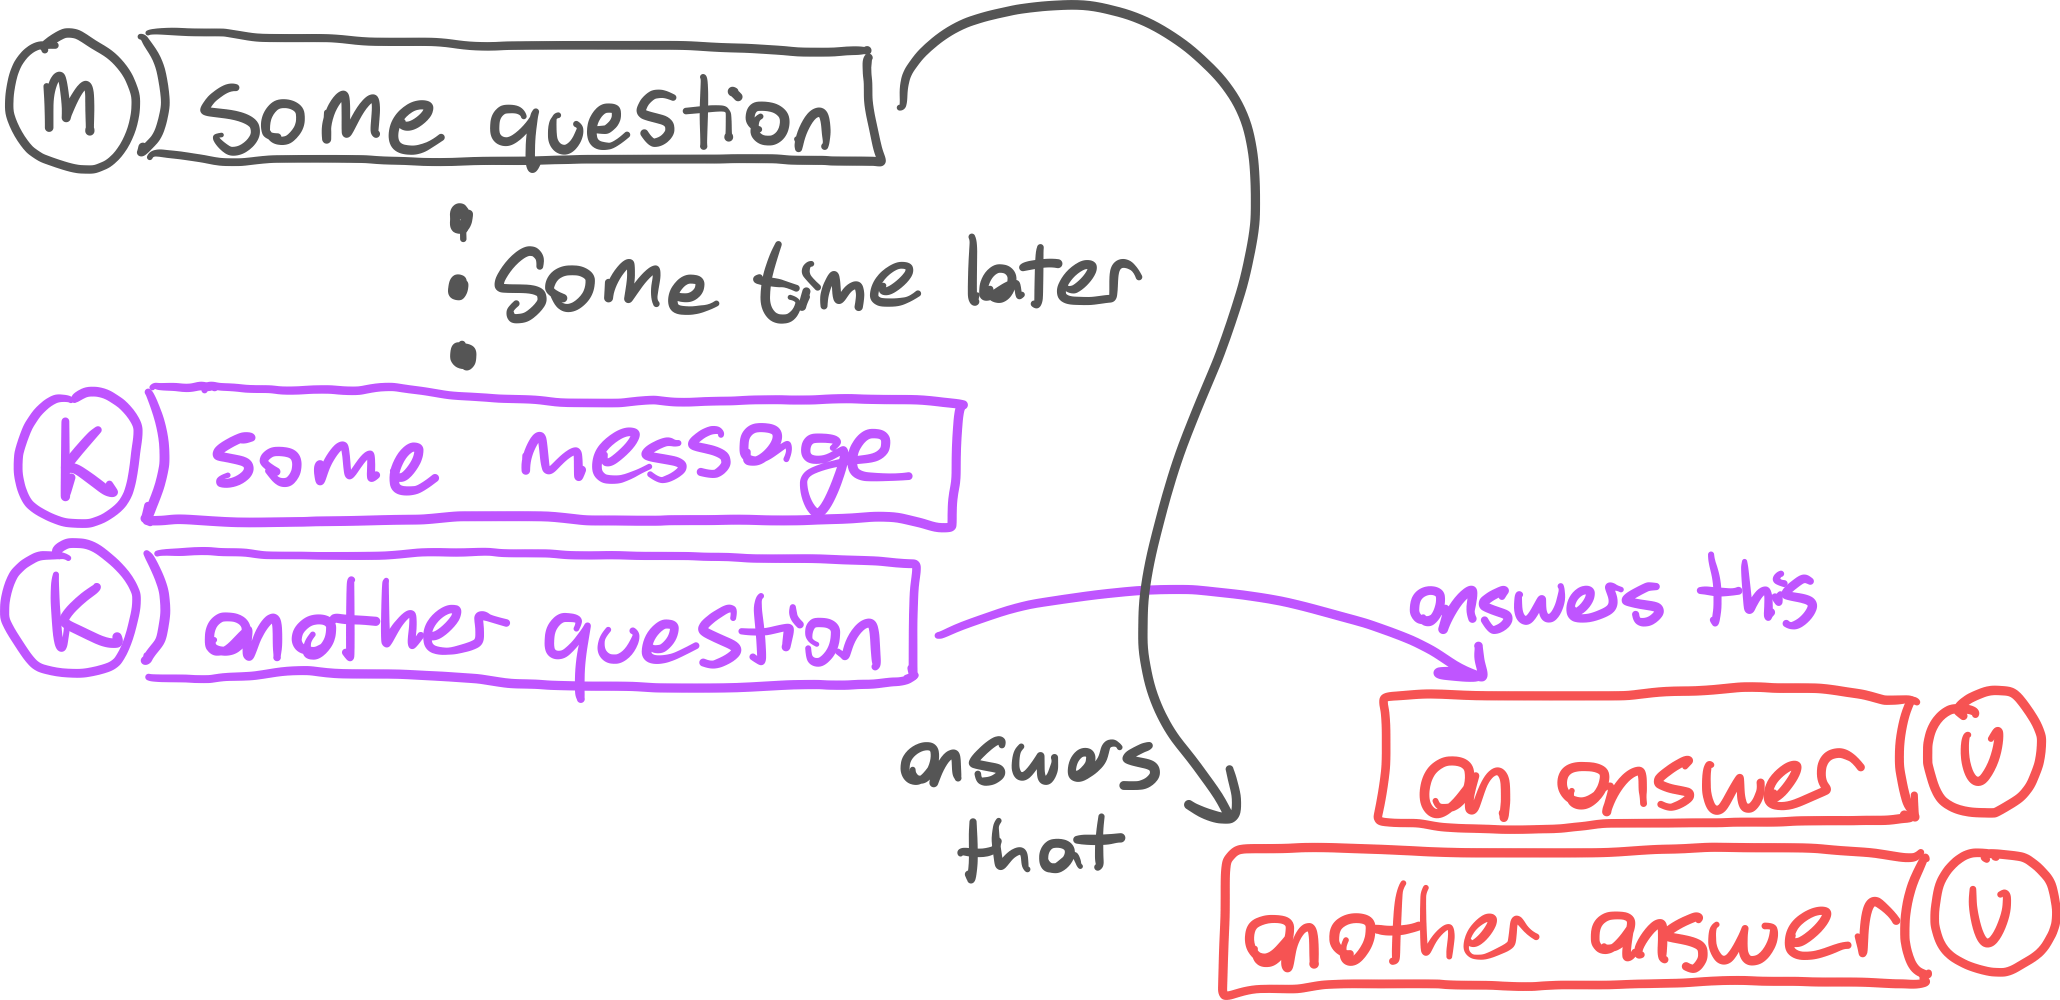 M some question
some time later
K some message
K another question
answers this
answers
that
an answer U
another answer U